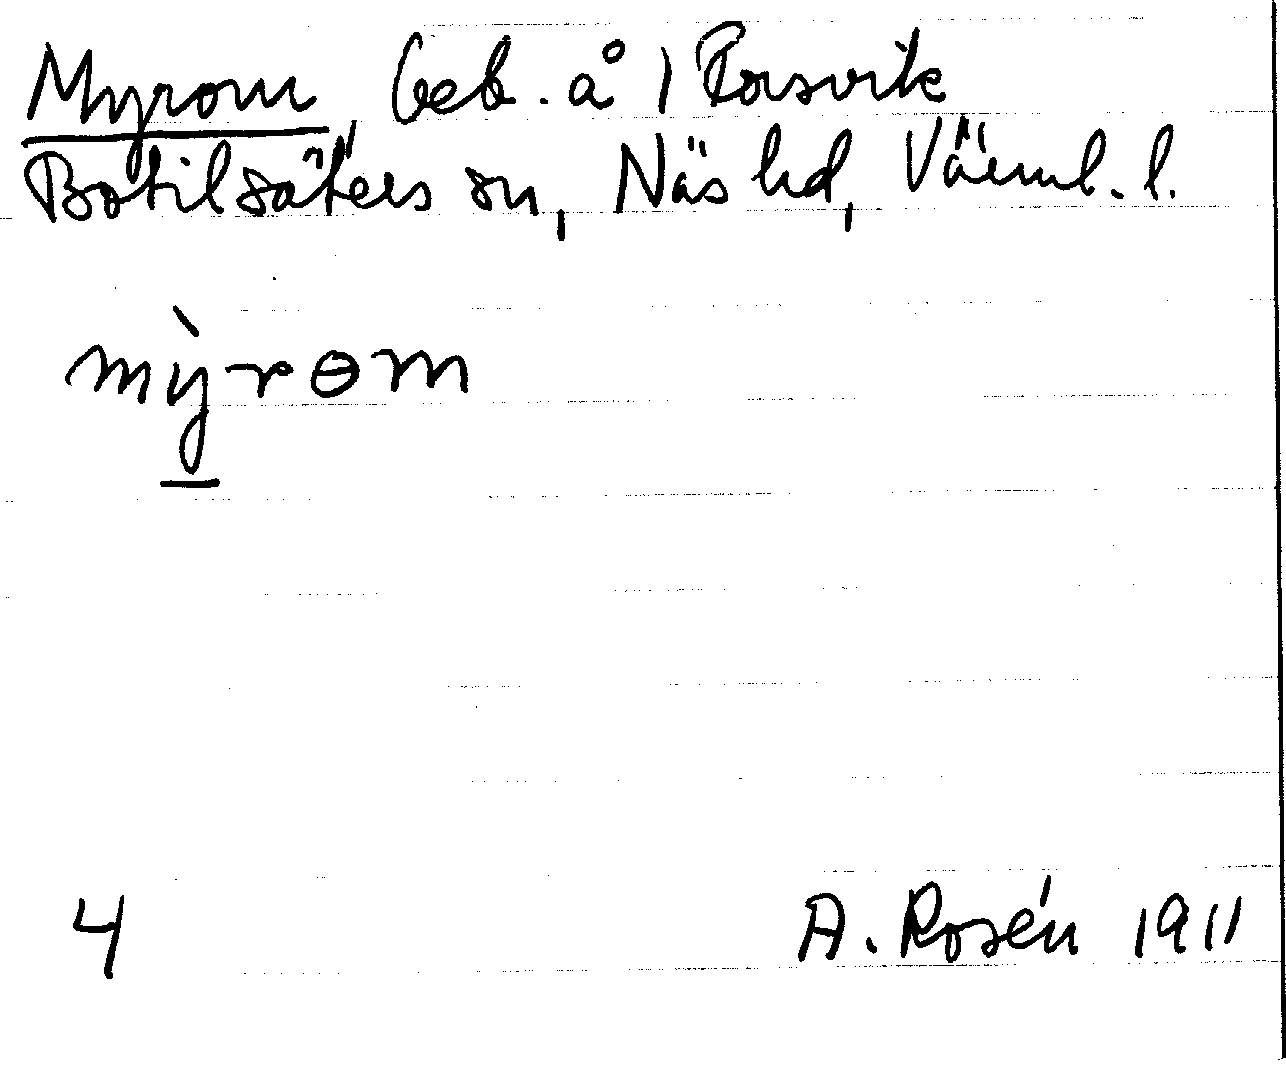 Myrom, beb. å 1 Rorsvik
Botilsäters sn, Näs hd, Värml. l.
mỳrɵm
4 A. Rosén 1911